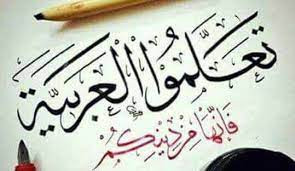 تعلّموا العربيّة
فإنّها من دينكم